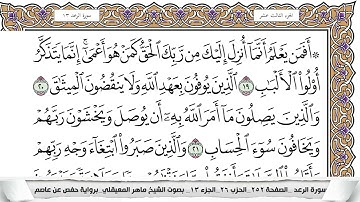 الجزء الثالث عشر
سورة الرعد ١٣
أَفَمَن يَعْلَمُ أَنَّمَا أُنزِلَ إِلَيْكَ مِن رَّبِّكَ الْحَقُّ كَمَنْ هُوَ أَعْمَىٰ إِنَّمَا يَتَذَكَّرُ
أُولُوا الْأَلْبَابِ ١٩ الَّذِينَ يُوفُونَ بِعَهْدِ اللَّهِ وَلَا يَنقُضُونَ الْمِيثَاقَ ٢٠
وَالَّذِينَ يَصِلُونَ مَا أَمَرَ اللَّهُ بِهِ أَن يُوصَلَ وَيَخْشَوْنَ رَبَّهُمْ
وَيَخَافُونَ سُوءَ الْحِسَابِ ٢١ وَالَّذِينَ صَبَرُوا ابْتِغَاءَ وَجْهِ رَبِّهِمْ
سورة الرعد _ الصفحة ٢٥٢ _ الحزب ٢٦ _ الجزء ١٣ _ بصوت الشيخ ماهر المعيقلي _ برواية حفص عن عاصم